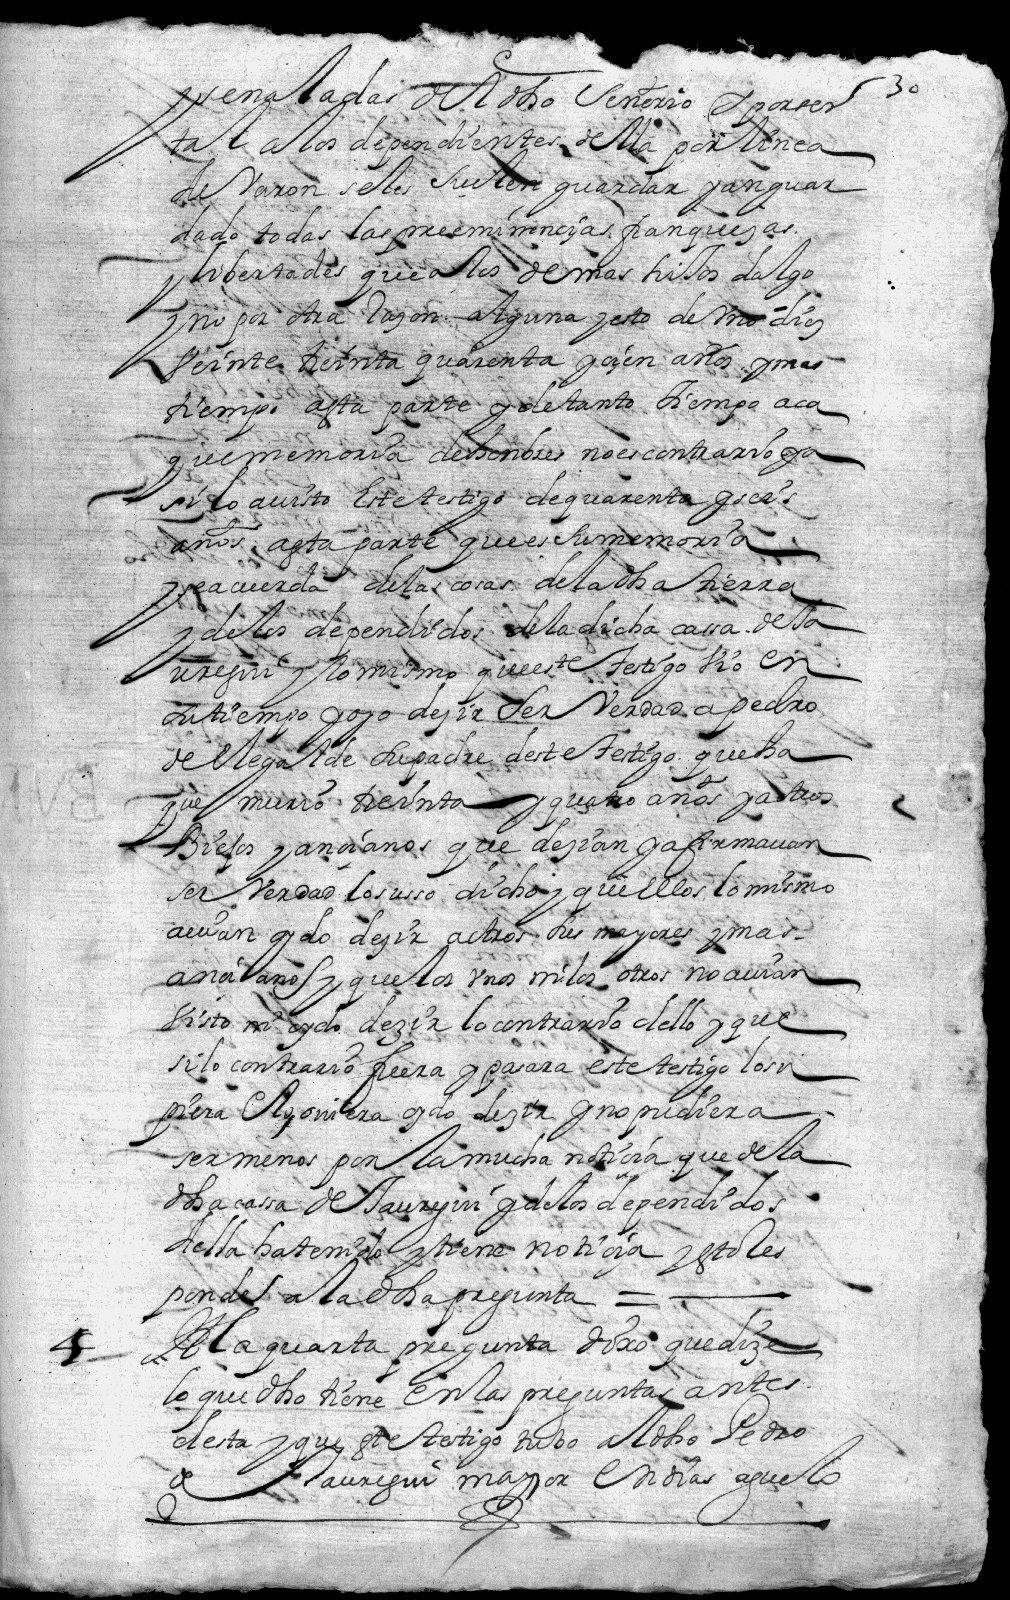 30
y senaladas del dho Señorio y por ser
tal a los dependientes della por linea
de Varon seles suelen guardar y an guar
dado todas las preeminencijas franquezas
y libertades que a los demas hijos dalgo
y no por otra Razon alguna y esto de vno diez
veinte treinta quarenta y çien años y mas
tiempo asta parte y de tanto tiempo aca
que memoria de honbres no es contrario y a
si lo a visto este testigo de quarenta y seis
años asta parte que es su memoria
y se acuerda de las cosas de la dha tierra
y de los dependidos de la dicha cassa de Ja
uregui y lo mismo que este testigo vio en
su tiempo oyo dezir ser Verdad a pedro
de Elegalde su padre deste testigo que ha
que murio treinta y quatro años y a otros
Biejos y ançianos que dezian y afirmauan
ser Verdad lo susso dicho y que ellos lo mismo
auian oydo dezir a otros sus mayores y mas
ançianos y que los vnos ni los otros no auian
visto ni oydo dezir lo contrario dello y que
si lo contrario fuera y pasara este testigo lo su
piera y oviera oydo dezir y no pudiera
ser menos por la mucha notiçia que de la
dha cassa de Jauregui y de los dependidos
della ha tenido y tiene notiçia y esto Res
ponde a la dha pregunta =
4 A la quarta pregunta dixo que dize
lo que dho tiene en las preguntas antes
desta y que este testigo tubo al dho Pedro
de Jauregui mayor en dias aguelo